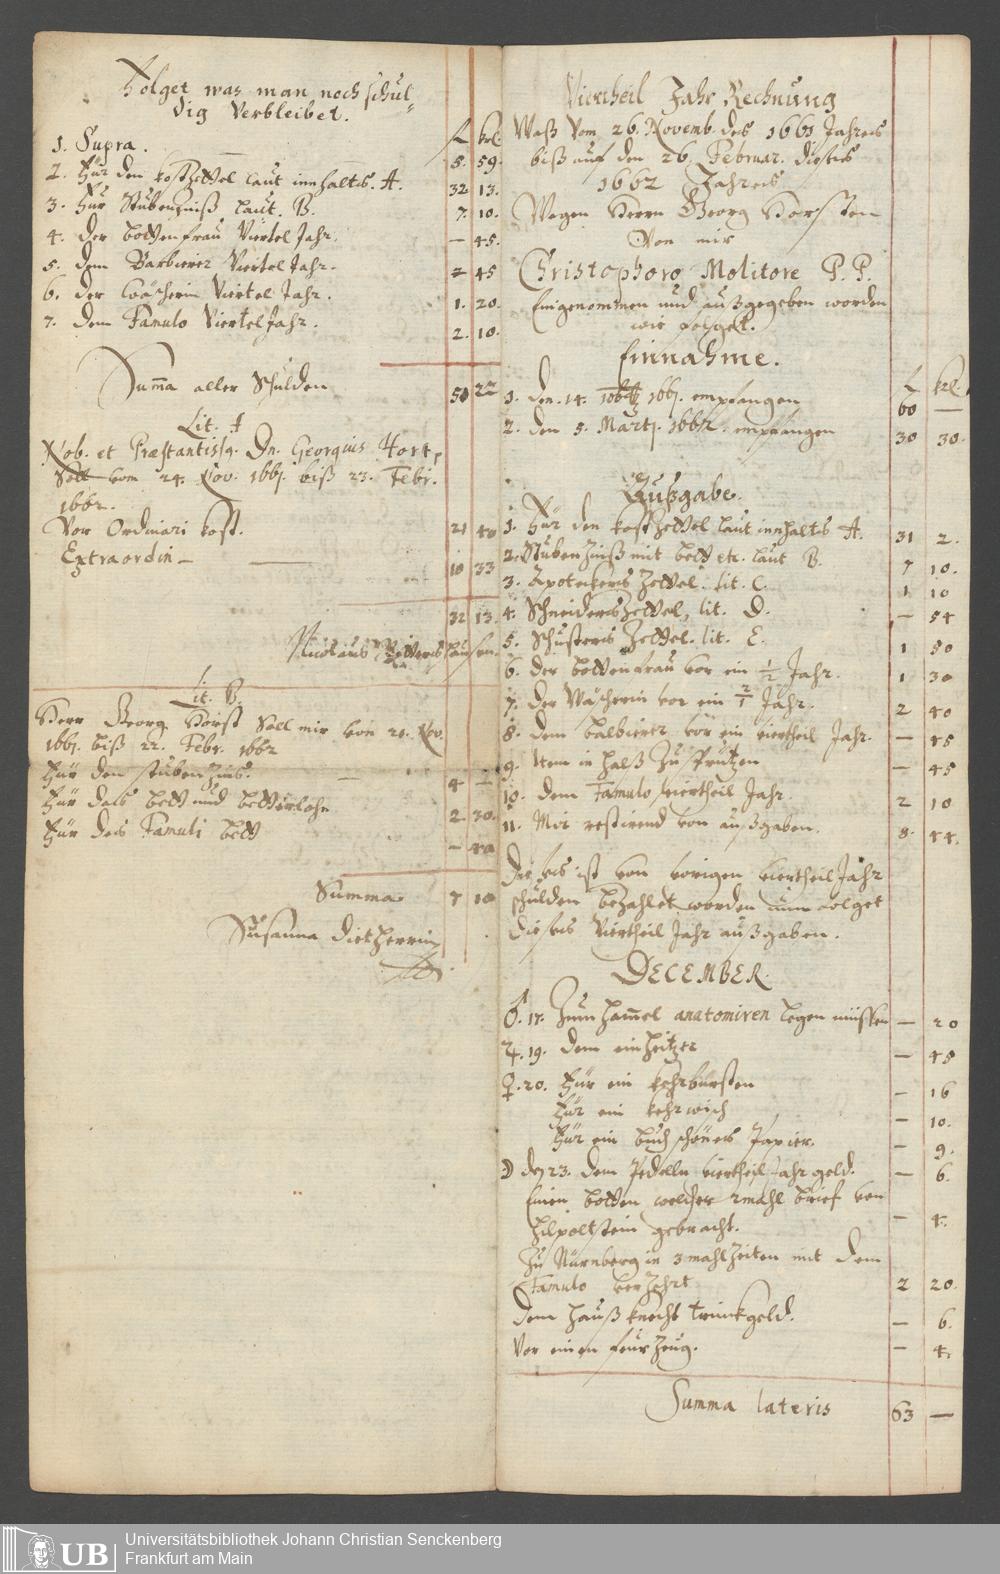 Folget was man noch schul-
dig Verbleibet.
fl krl
1. Supra. 5. 59.
2. Für den kostzettel laut innhalts. A. 32 13.
3. Für Stubenzinß laut. B. 7. 10.
4. Der bettenfrau Viertel Jahr. — 45.
5. Dem Barbierer Viertel Jahr. — 45
6. Der Wäscherin Viertel Jahr. 1. 20.
7. Dem Famulo Viertel Jahr. 2. 10.
Summa aller Schulden 50 22
Lit. A
Nob. et Præstantiss. Dn. Georgius Horst,
Soll vom 24. Nov. 1661. biß 23. Febr.
1662.
Vor Ordinari kost. 21 40
Extraordin — 10 33
32 13.
Nicolaus
Lit. B.
Herr Georg Horst Soll mir von 21. Nov.
1661. biß 22. Febr. 1662
Für den stuben Zinß. 4 —
Für das bett und bettlerlohn 2 30.
Für des Famuli bett — 40
Summa 7 10
Susanna Dietherrin
Viertheil Jahr Rechnung
Waß Vom 26. Novemb. des 1661 Jahres
biß auf den 26. Februar. dieses
1662 Jahres
Wegen Herrn Georg Horsten
Von mir
Christophoro Molitore P. P.
Eingenommen und außgegeben worden
wie folget.
Einnahme.
fl krl.
1. Den. 14. 10b 1661. empfangen 60 —
2. den 5. Martj. 1662. empfangen 30 30.
Außgabe.
1. Für den kostzettel laut innhalts A. 31 2.
2. Stuben Zinß mit bett etc. laut B. 7 10.
3. Apoteckers Zettel. lit. C. 1 10
4. Schneiders Zettel, lit. D. — 54
5. Schusters Zettel. lit. E. 1 50
6. der bettenfrau vor ein 1/2 Jahr. 1 30
7. der Wäscherin vor ein 2/1 Jahr. 2 40
8. dem balbierer vor ein viertheil Jahr. — 45
9. Item in halß Zu — 45
10. dem Famulo viertheil Jahr. 2 10
11. Mir restirend von außgaben. 8. 44.
Dieses ist von vorigen viertheil Jahr
schulden bezahlet worden nun folget
dieses Viertheil Jahr außgaben.
DECEMBER.
♂. 17. Zum hammel anatomiren legen müssen — 20
♃. 19. dem einheitzer — 45
♀. 20. Für ein kehrbürsten — 16
Für ein kehrwisch — 10.
Für ein buch schönes Papier. — 9.
☽ den 23. dem Pedelln viertheil Jahr geld. — 6.
Einen botten welcher 2mahl brief von
Hilpoltstein gebracht. — 4.
Zu Nürnberg in 3 mahlzeiten mit dem
Famulo verzehrt 2 20.
dem hauß knecht trinckgeld. — 6.
Vor einen feur Zeug. — 4.
Summa lateris 63 —
UB
Universitätsbibliothek Johann Christian Senckenberg
Frankfurt am Main